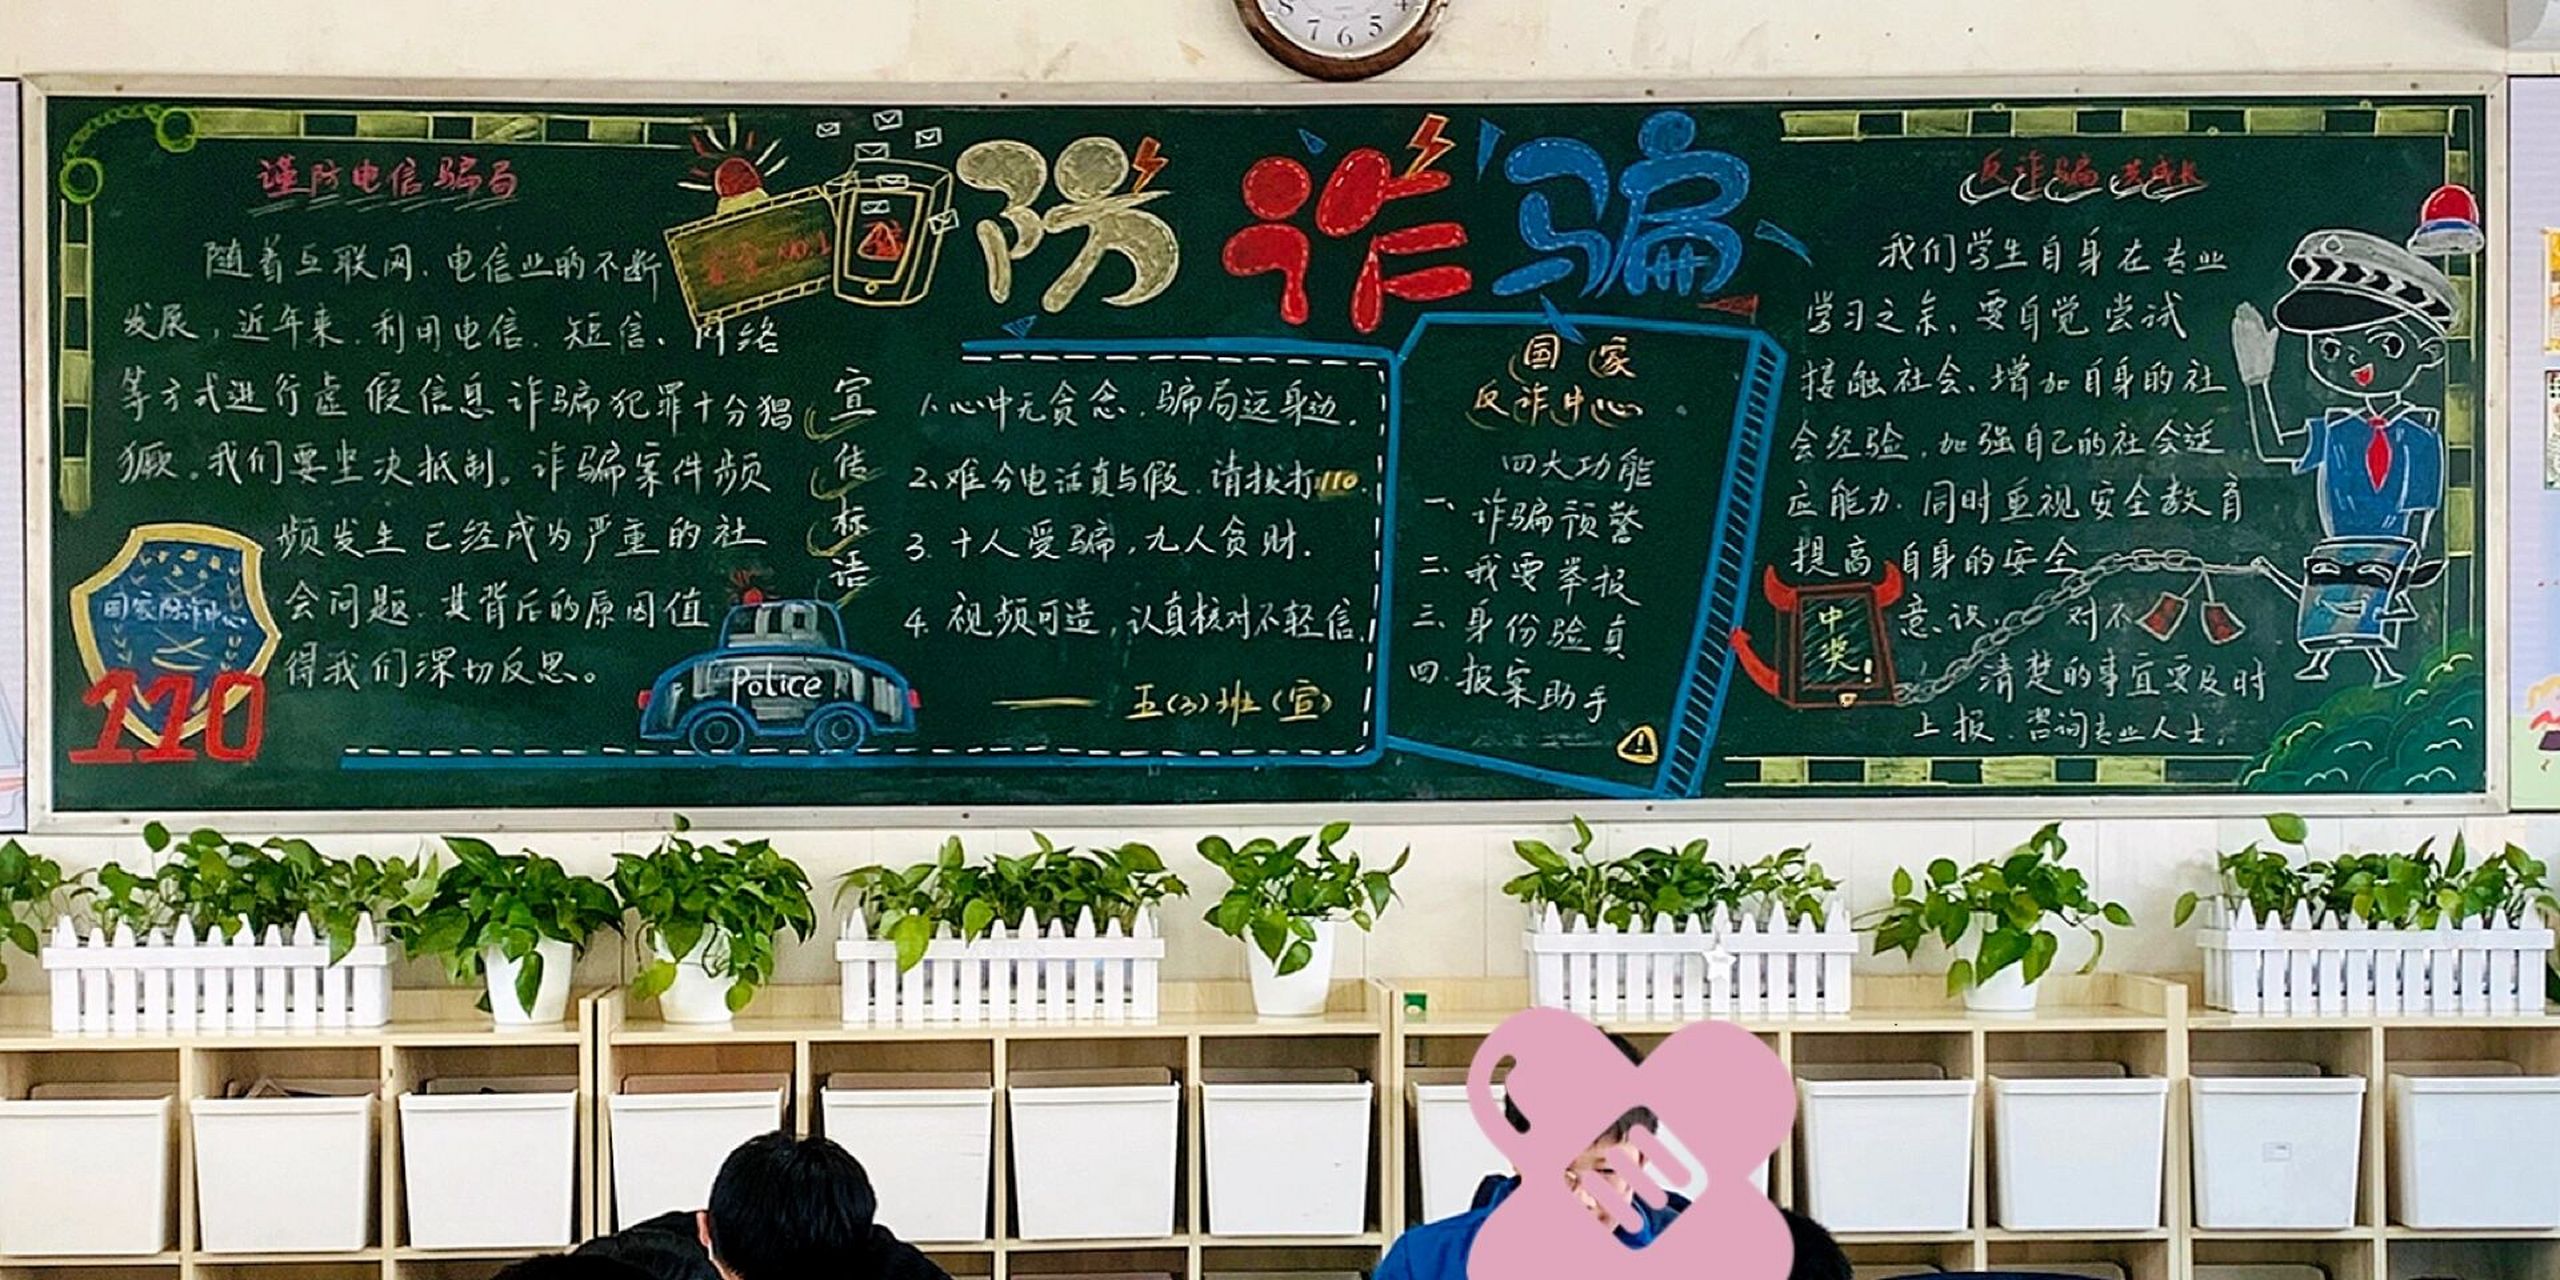 8 7 6 5 4
防诈骗
谨防电信骗局
随着互联网、电信业的不断
发展，近年来，利用电信、短信、网络
等方式进行虚假信息诈骗犯罪十分猖
獗。我们要坚决抵制。诈骗案件频
频发生已经成为严重的社
会问题，其背后的原因值
得我们深切反思。
国家防诈中心
110
NO.1
Police
宣传标语
1、心中无贪念，骗局远身边。
2、难分电话真与假，请拨打110.
3. 十人受骗，九人贪财.
4. 视频可造，认真核对不轻信.
五(3)班(宣)
国家
反诈中心
四大功能
一、诈骗预警
二、我要举报
三、身份验真
四.报案助手
反诈骗 共成长
我们学生自身在专业
学习之余、要自觉尝试
接触社会、增加自身的社
会经验，加强自己的社会适
应能力.同时重视安全教育
提高自身的安全
意识， 对不
清楚的事宜要及时
上报.咨询专业人士.
中奖!